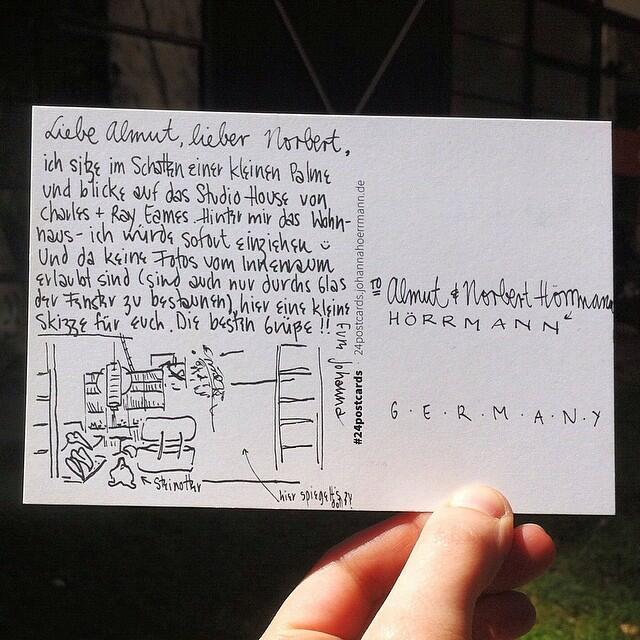 Liebe Almut, lieber Norbert,
ich sitze im Schatten einer kleinen Palme
und blicke auf das Studio House von
Charles + Ray Eames. Hinter mir das Wohn-
haus - ich würde sofort einziehen ☺
Und da keine Fotos vom Innenraum
erlaubt sind (sind auch nur durchs Glas
der Fenster zu bestaunen), hier eine kleine
Skizze für euch. Die besten Grüße !!
Eure Johanna
hier spiegelt's
#24postcards · 24postcards.johannahoerrmann.de
TO
Almut & Norbert Hörrmann
HÖRRMANN
G·E·R·M·A·N·Y